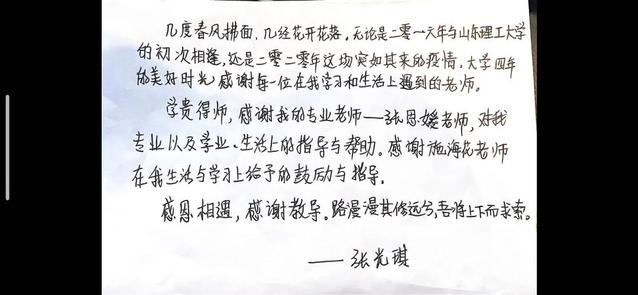 几度春风拂面，几经花开花落。无论是二零一六年与山东理工大学
的初次相逢，还是二零二零年这场突如其来的疫情。大学四年
的美好时光感谢每一位在我学习和生活上遇到的老师。
学贵得师，感谢我的专业老师——张恩媛老师，对我
专业以及学业、生活上的指导与帮助。感谢海花老师
在我生活与学习上给予的鼓励与指导。
感恩相遇，感谢教导。路漫漫其修远兮，吾将上下而求索。
——张光琪